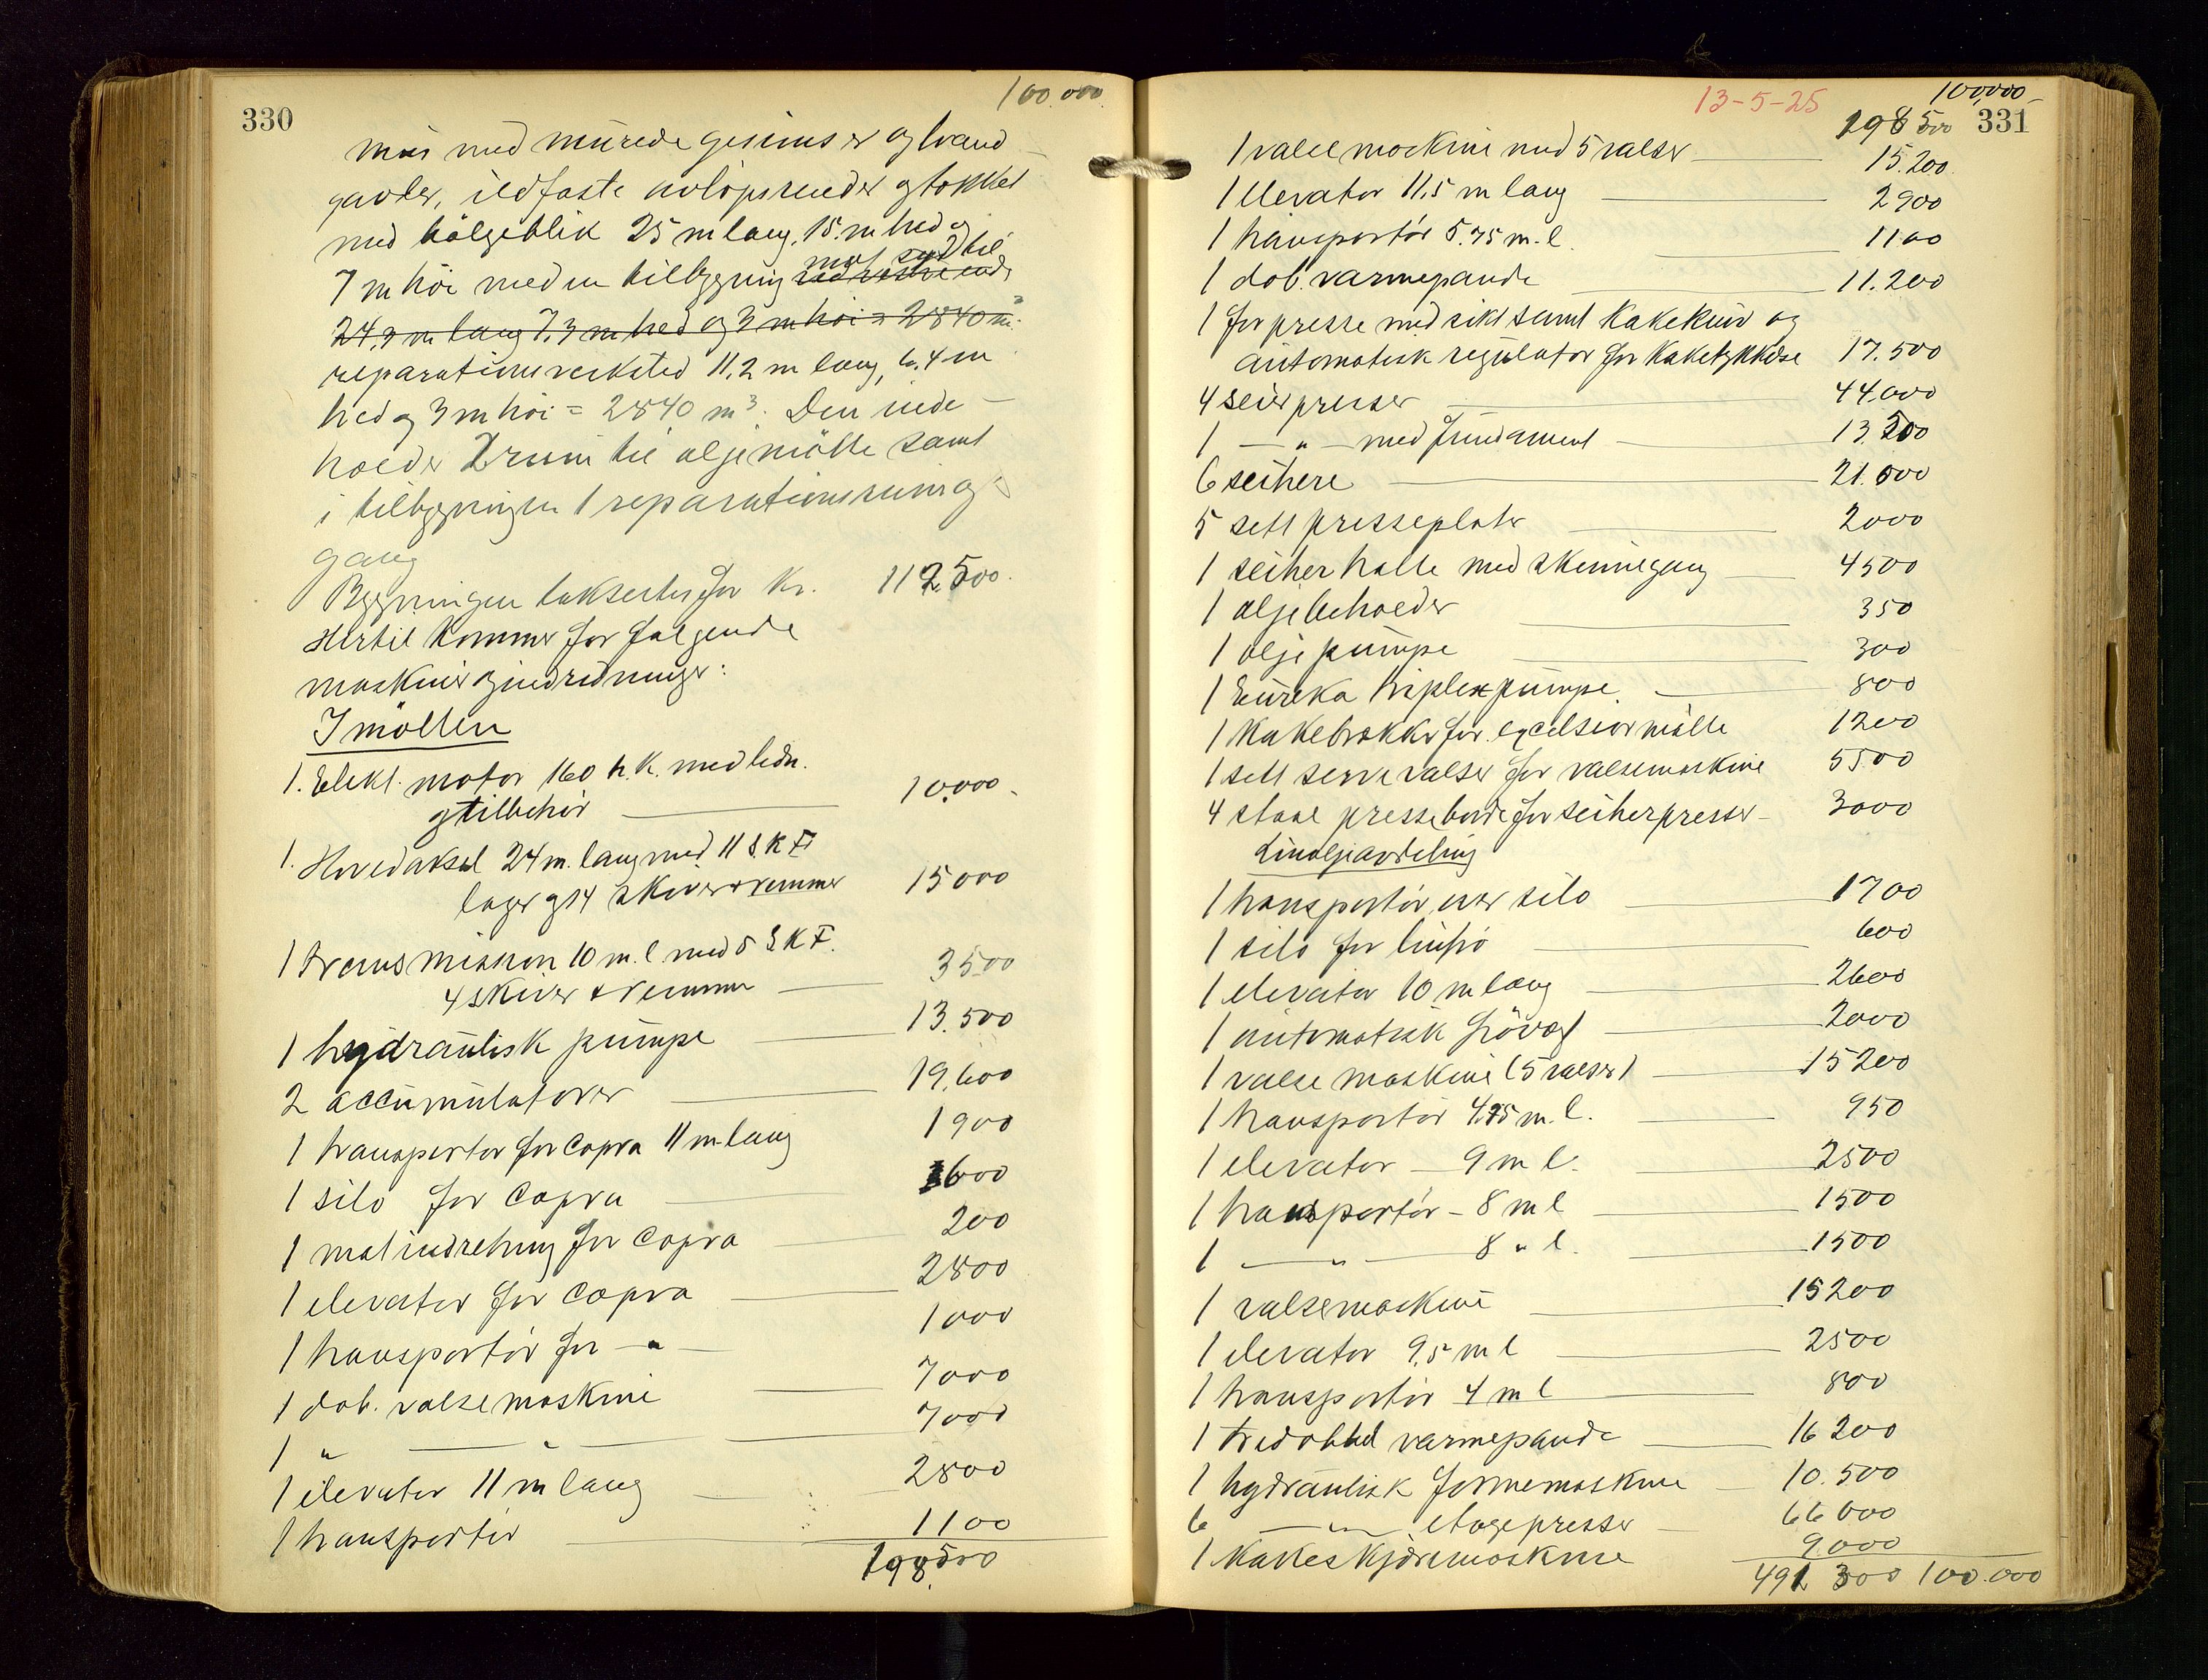 330
100.000
mur med murede gesimser og brand-
gavler, ildfaste avløpsrender og tækket
med bölgeblik 25 m lang, 15. m bred og
7 m höi med en tilbygning ved vestre ende
mot syd til
24,3 m lang 7,3 m bred og 3 m höi = 2840 m³
reparationsverksted 11,2 m lang, 6,4 m
bred og 3 m höi = 2840 m³. Den inde-
holder 2 rum til oljemölle samt
i tilbygningen 1 reparationsrum og
gang
Bygningen takseres for Kr. 112.500.
Hertil kommer for følgende
maskiner og indredninger:
I möllen
1. Elekt. motor 160 h.k. med ledn.
og tilbehör 10.000.
1. Hovedaksel 24 m. lang med 11 S.K.F
lager og 14 skiver + remmer 15000
1 transmission 10 m. l. med 5 S K F.
4 skiver + remmer 3500
1 hydraulisk pumpe 13.500
2 accumulatorer 19.600
1 transportör for copra 11 m. lang 1900
1 silo for copra 600
1 matindretning for copra 200
1 elevator for copra 2800
1 transportör for -"- 1000
1 dob. valsemaskine 7000
1 " " 7000
1 elevator 11 m lang 2800
1 transportör 1100
198.500
13-5-25
100,000
331
198 500
1 valsemaskine med 5 valser 15.200
1 elevator 11,5 m lang 2900
1 transportör 5.75 m. l. 1100
1 dob. varmepande 11.200
1 forpresse med sikt samt kakekniv og
automatisk regulator for kaketykkelse 17.500
4 seierpresser 44.000
1 -"- med fundament 13.200
6 seihere 21.000
5 sett presseplater 2000
1 seiher halle med skinnegang 4500
1 oljebeholder 350
1 olje pumpe 300
1 Eureka triplexpumpe 800
1 kakebrekker for excelsiormölle 1200
1 sett reservevalser for valsemaskine 5500
4 staal pressebord for seiherpresser 3000
Linoljeavdeling
1 transportör over silo 1700
1 silo for linfrö 600
1 elevator 10 m lang 2600
1 automatisk frövegt 2000
1 valsemaskine (5 valser) 15200
1 transportör 4.75 m. l. 950
1 elevator - 9 m l. 2500
1 transportör - 8 m l 1500
1 -"- 8 " l. 1500
1 valsemaskine 15200
1 elevator 9,5 m l 2500
1 transportör 4 m l 800
1 tredobbel varmepande 16200
1 hydraulisk formemaskine 10.500
6 -"- etagepresser 66000
1 kakeskjæremaskine 9000
491 300 100.000